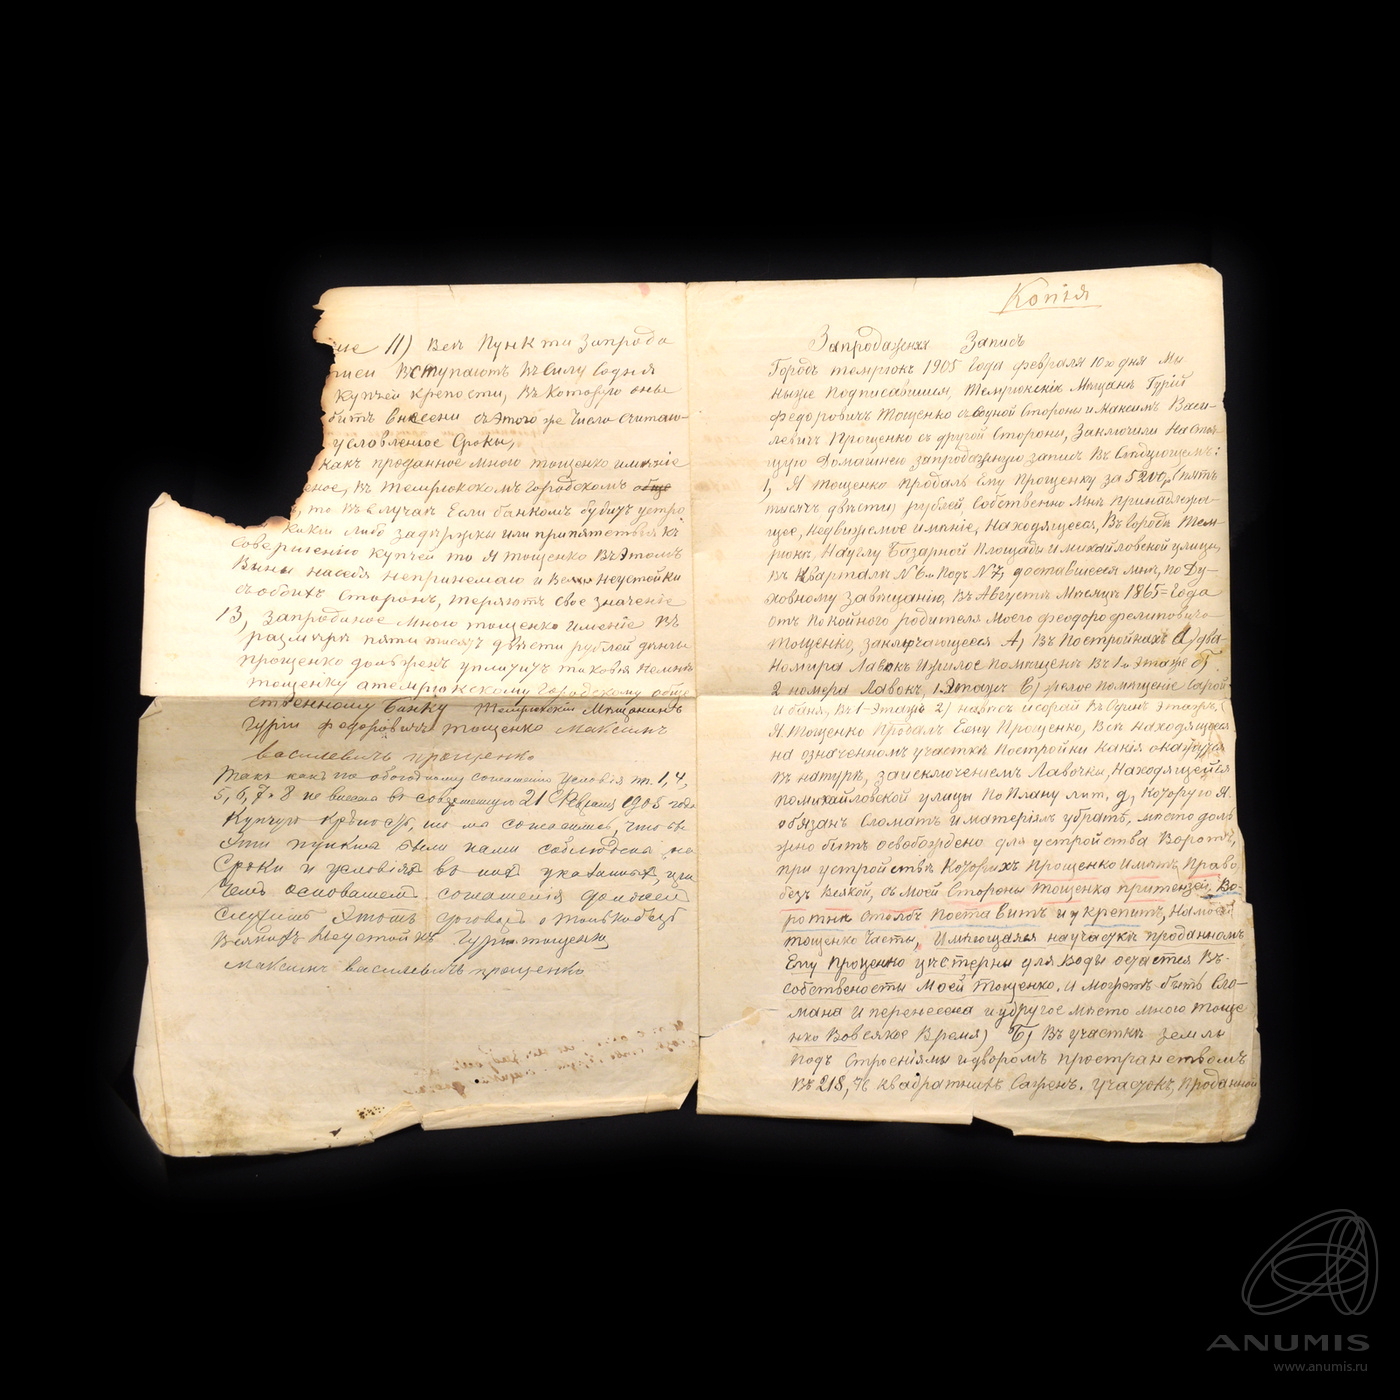 ние 11) Все Пункти Запрода
писи вступають въ Силу Содня
купчей крепости, въ Которую оны
бытъ внесени съ этого же Число Считаю
условленое Сроки,
какъ проданное мною тощенко имение
въ темрюкскомъ городскомъ обще
то въ случае Если банкомъ будутъ устро
какия либо задержки или припятствия къ
совершению купчей то Я тощенко въ этомъ
Вины насебя непринемаю и Неустойки
съобоихъ Сторонъ, теряютъ свое значение
13, Запроданое мною тощенко имение въ
размѣре пяти тысячъ двести рублей деньги
прощенко долженъ уплотитъ таковыя
тощенку атемрюкскому городскому обще
ственному банку темрюкский Мещанинъ
Гурий федоровичъ тощенко Максимъ
василевичь прощенко
Такъ какъ по обоюдному соглашению условия пп. 1, 4,
5, 6, 7 и 8 не внесены въ совершенную 21 Февраля 1905 года
Купчую крѣпость, то мы согласились, чтобы
эти пункты были нами соблюдены на
Сроки и условия въ них указанныя,
чемъ основание соглашения должен
служить этотъ договоръ о только безъ
всякихъ неустойкъ Гурий тощенко
Максимъ василевичъ прощенко
Копія
Запродажная Запись
Городъ темрюкъ 1905 года февраля 10го дня Мы
ныже подписавшися, темрюкскіе Мещане Гурій
Федоровичъ Тощенко съ одной Стороны и Максимъ Васи-
левичъ Прощенко съ другой Стороны, Заключили насто
щую домашнею запродажную запись въ Следующемъ:
1, Я Тощенко продалъ Ему Прощенку за 5200, (пять
тисячъ двѣсти) рублей, Собственно Мнѣ принадлежа-
щее, недвижемое имѣніе, находящееся, въ городѣ Тем-
рюкѣ, на углу Базарной Площади и михайловской улици,
въ Кварталѣ N 6м подъ N 7, доставшееся мнѣ, по Ду-
ховному завѣщанію, въ Августѣ месяцѣ 1865= года
отъ покойного родителя моего федоро фелиповича
Тощенко, заключающееся А) въ Постройкахъ а) два
номира Лавокъ и жилое помѣщеніе въ 1м этаже б)
2 номера Лавокъ, 1 этажъ в) целое помѣщение сарой
и баня, въ 1 этажъ 2) навесъ и сорай въ Одинъ этажъ. (
Я Тощенко продалъ Ему Прощенко, Все находящееся
на означенномъ участкѣ Постройки какія окажутся
въ натурѣ, за исключениемъ Лавочки, находящейся
помихайловской улицы по плану лит. д, которую я
обязанъ сломать и материалъ убрать, место дол
жно быть освобождено для устройства воротъ,
при устройстве которихъ Прощенко иметъ Право
безъ Всякой, съ Моей Стороны Тощенко притензей, во-
ротные столбъ поставить и укрепить, на моей
тощенко части, Имеющаяся научаскѣ проданномъ
Ему Прощенко цыстерна для воды остается въ
собственосты моей Тощенко, и можетъ быть сло-
мана и перенесена и удругое место мною тоще
нко вовсякое время) Б) въ участкѣ земли
подъ Строениямы и дворомъ пространствомъ
въ 218, 76 квадратныхъ Сажен. участокъ, проданной
ANUMIS
www.anumis.ru